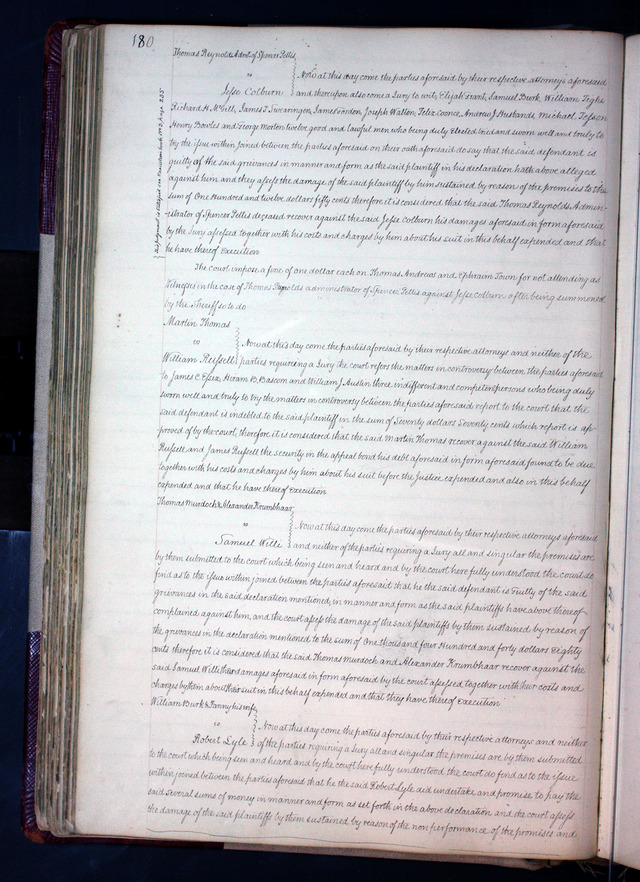 180
Thomas Reynolds Admr. of Spencer Pettis
vs
Now at this day come the parties aforesaid by their respective attorneys aforesaid
Jesse Colburn and thereupon also come a Jury to wit, Elijah Grant, Samuel Burk, William Tighe
Richard H. McGill, James T Swearingen, James Gordon, Joseph Walton, Felix Coonce, Andrew J Husbands, Michael Tesson
Henry Bowles and George Morton twelve good and lawful men who being duly elected tried and sworn well and truly to
try the issue within joined between the parties aforesaid on their oath aforesaid do say that the said defendant is
guilty of the said grievances in manner and form as the said plaintiff in his declaration hath above alleged
against him and they assess the damage of the said plaintiff by him sustained by reason of the premises to the
sum of One Hundred and twelve dollars fifty cents therefore it is considered that the said Thomas Reynolds Admin-
istrator of Spencer Pettis deceased recover against the said Jesse Colburn his damages aforesaid in form aforesaid
by the Jury assessed together with his costs and charges by him about his suit in this behalf expended and that
he have thereof Execution
This Judgment is satisfied see Execution book No 3 page 235
The Court impose a fine of one dollar each on Thomas Andrews and Ephraim Town for not attending as
Witnesses in the case of Thomas Reynolds administrator of Spencer Pettis against Jesse Colburn after being summoned
by the Sheriff so to do
Martin Thomas
vs Now at this day come the parties aforesaid by their respective attorneys and neither of the
William Russell parties requiring a Jury the court refers the matters in controversy between the parties aforesaid
to James C Essex, Hiram B. Bascom and William J Austin three indifferent and competent persons who being duly
sworn well and truly to try the matters in controversy between the parties aforesaid report to the court that the
said defendant is indebted to the said plaintiff in the sum of Seventy dollars Seventy cents which report is ap-
proved of by the court, therefore it is considered that the said Martin Thomas recover against the said William
Russell and James Russell the security in the appeal bond his debt aforesaid in form aforesaid found to be due
together with his costs and charges by him about his suit before the Justice expended and also in this behalf
expended and that he have thereof Execution
Thomas Murdoch & Alexander Krumbhaar
vs Now at this day come the parties aforesaid by their respective attorneys aforesaid
Samuel Willi and neither of the parties requiring a Jury all and singular the premises are
by them submitted to the court which being seen and heard and by the court here fully understood the court do
find as to the issue within joined between the parties aforesaid that he the said defendant is Guilty of the said
grievances in the said declaration mentioned, in manner and form as the said plaintiffs have above thereof
complained against him, and the court assess the damage of the said plaintiffs by them sustained by reason of
the grievances in the declaration mentioned to the sum of One thousand four Hundred and forty dollars Eighty
cents therefore it is considered that the said Thomas Murdoch and Alexander Krumbhaar recover against the
said Samuel Willi their damages aforesaid in form aforesaid by the court assessed together with their costs and
charges by them about their suit in this behalf expended and that they have thereof Execution
William Burk & Fanny his wife
vs Now at this day come the parties aforesaid by their respective attorneys and neither
Robert Lyle of the parties requiring a Jury all and singular the premises are by them submitted
to the court which being seen and heard and by the court here fully understood the court do find as to the issue
within joined between the parties aforesaid that he the said Robert Lyle did undertake and promise to pay the
said several sums of money in manner and form as set forth in the above declaration and the court assess
the damage of the said plaintiffs by them sustained by reason of the non performance of the promises and